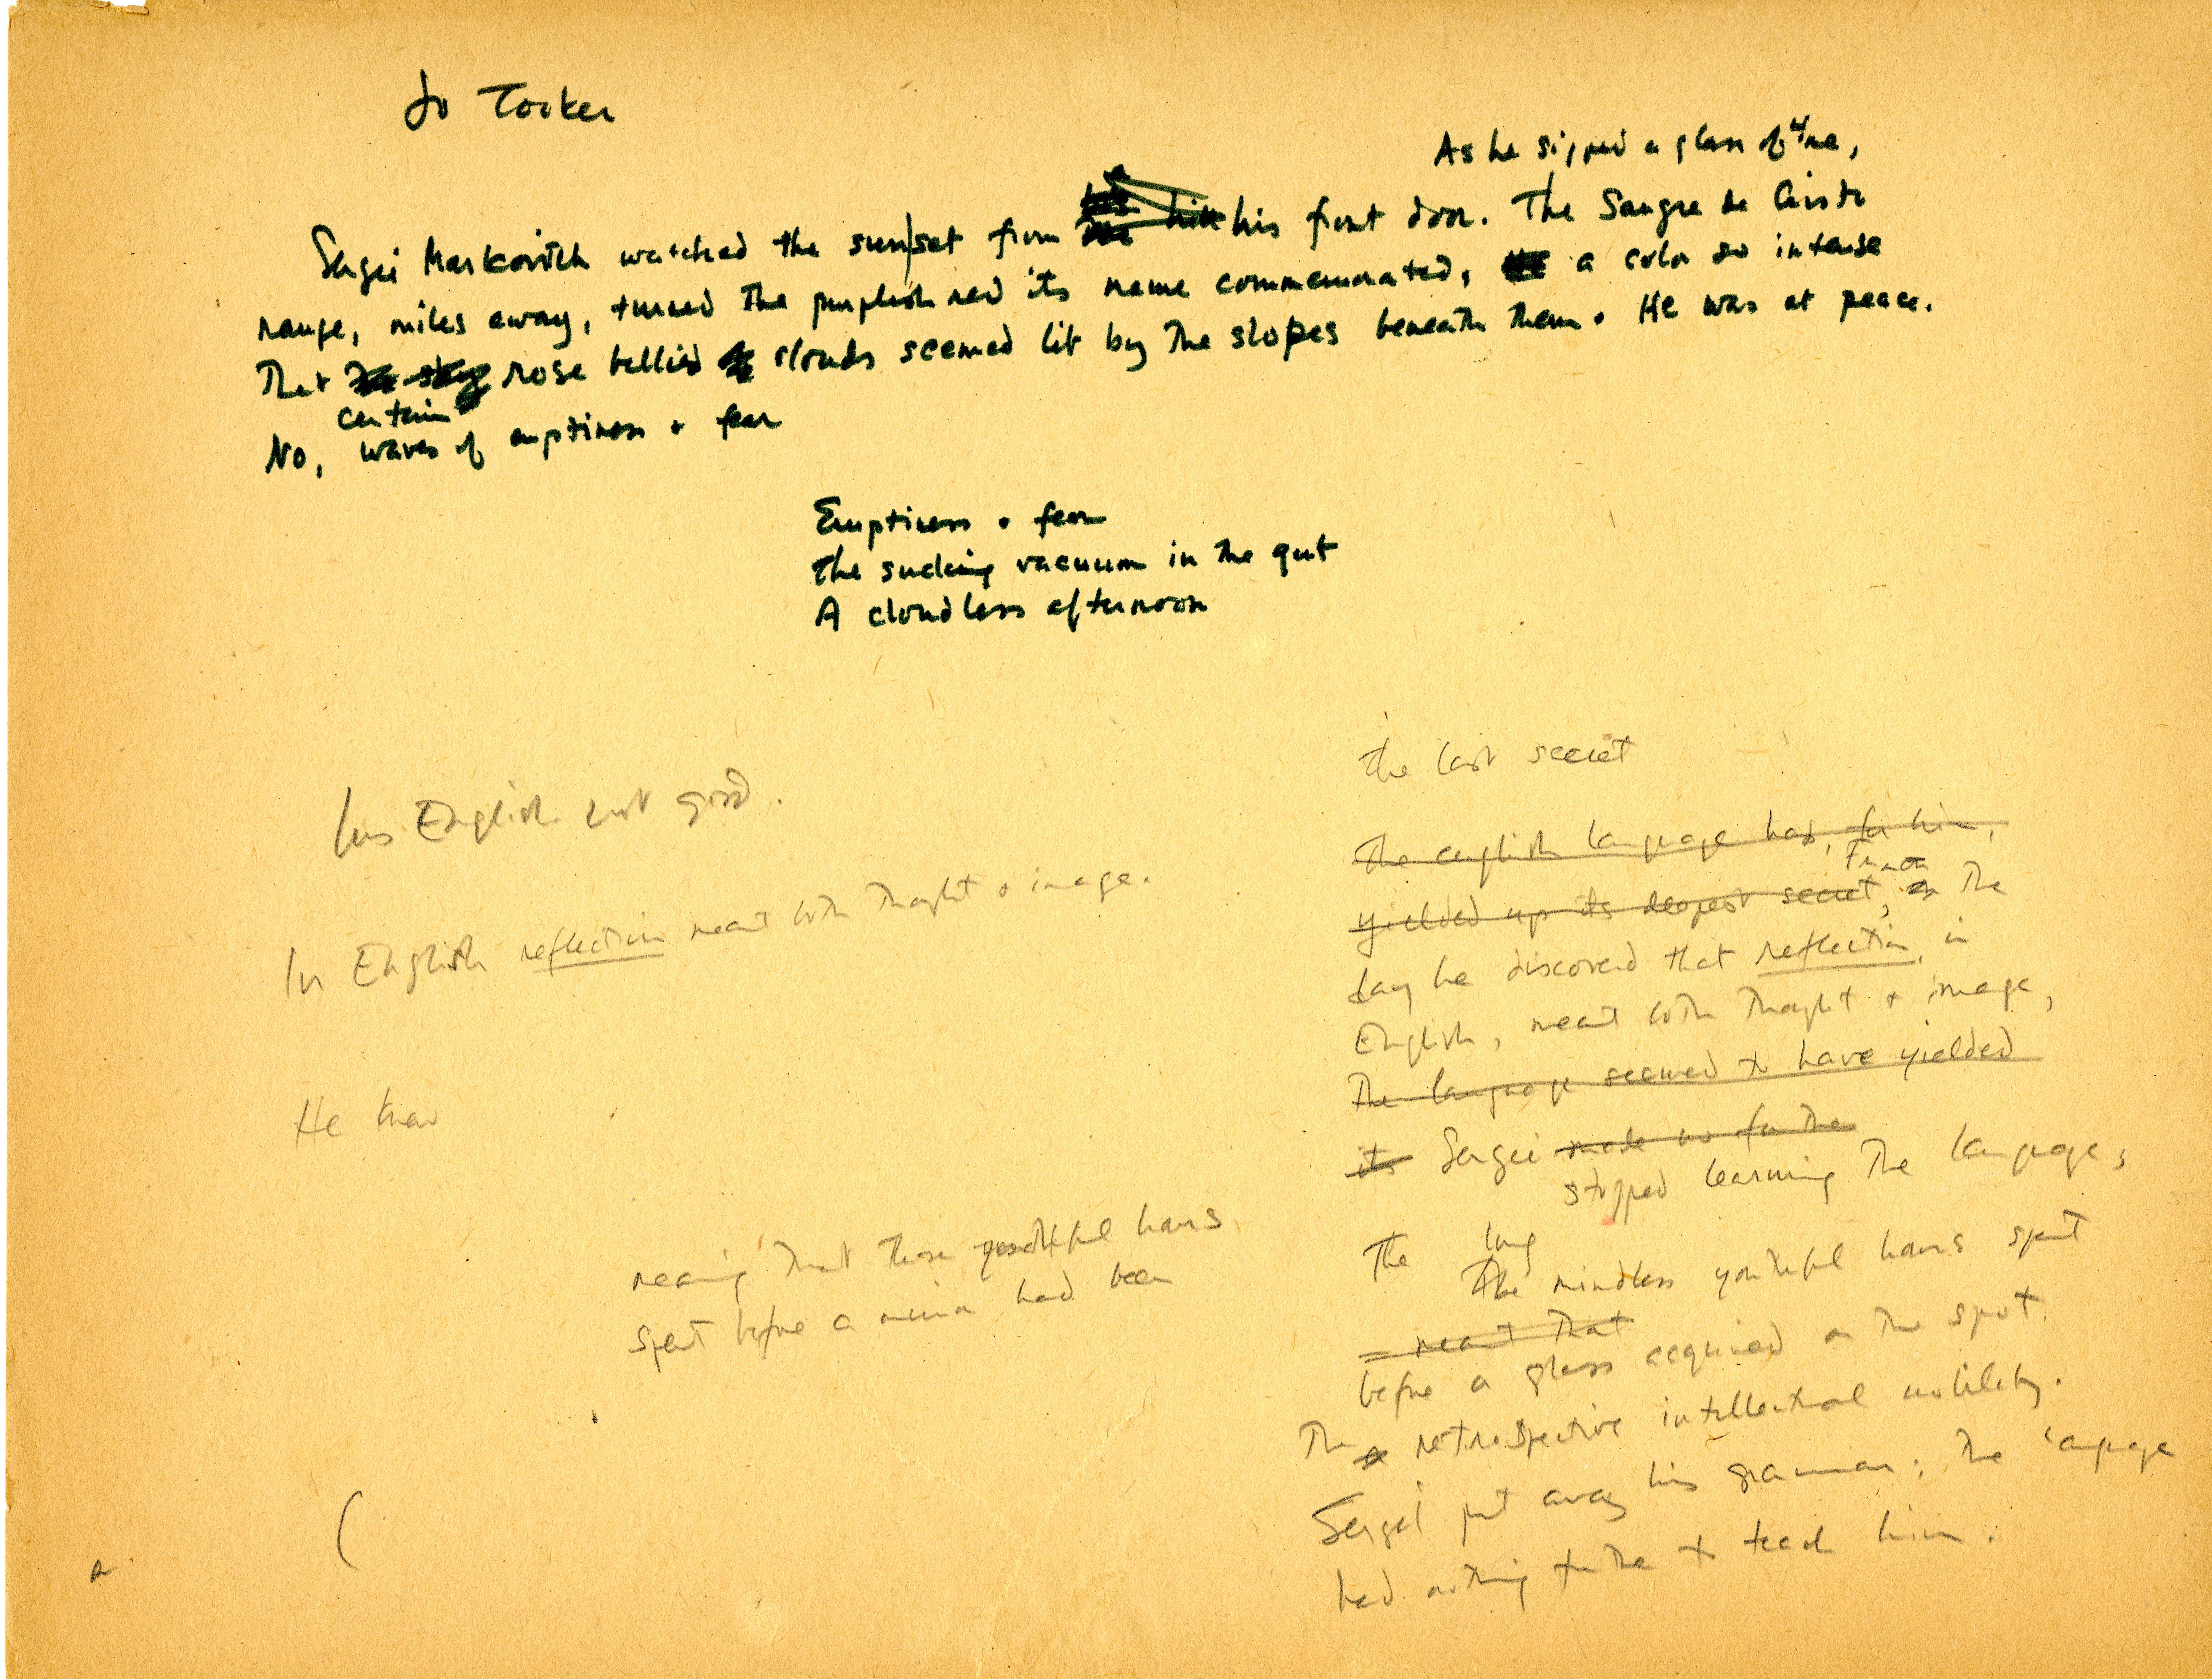 Jo Tooker
As he sipped a glass of wine,
Sergei Markovitch watched the sun|set from his front door. The Sangre de Cristo
range, miles away, turned the purplish red its name commemorated, a color so intense
That rose bellied clouds seemed lit by the slopes beneath them. He was at peace.
certain
No, waves of emptiness + fear
Emptiness + fear
The sucking vacuum in the gut
A cloudless afternoon
The last secret
His English not good.
The english language had, for him,
From
yielded up its deepest secret, on The
In English reflection meant both thought + image.
day he discovered that reflection, in
English, meant both thought + image,
The language seemed to have yielded
He knew
its Sergei made no further
stopped learning the language;
The long
meaning that those youthful hours
The mindless youthful hours spent
spent before a mirror had been
meant that
before a glass acquired on the spot
The retrospective intellectual nobility.
Sergei put away his grammar; the language
had nothing further to teach him.